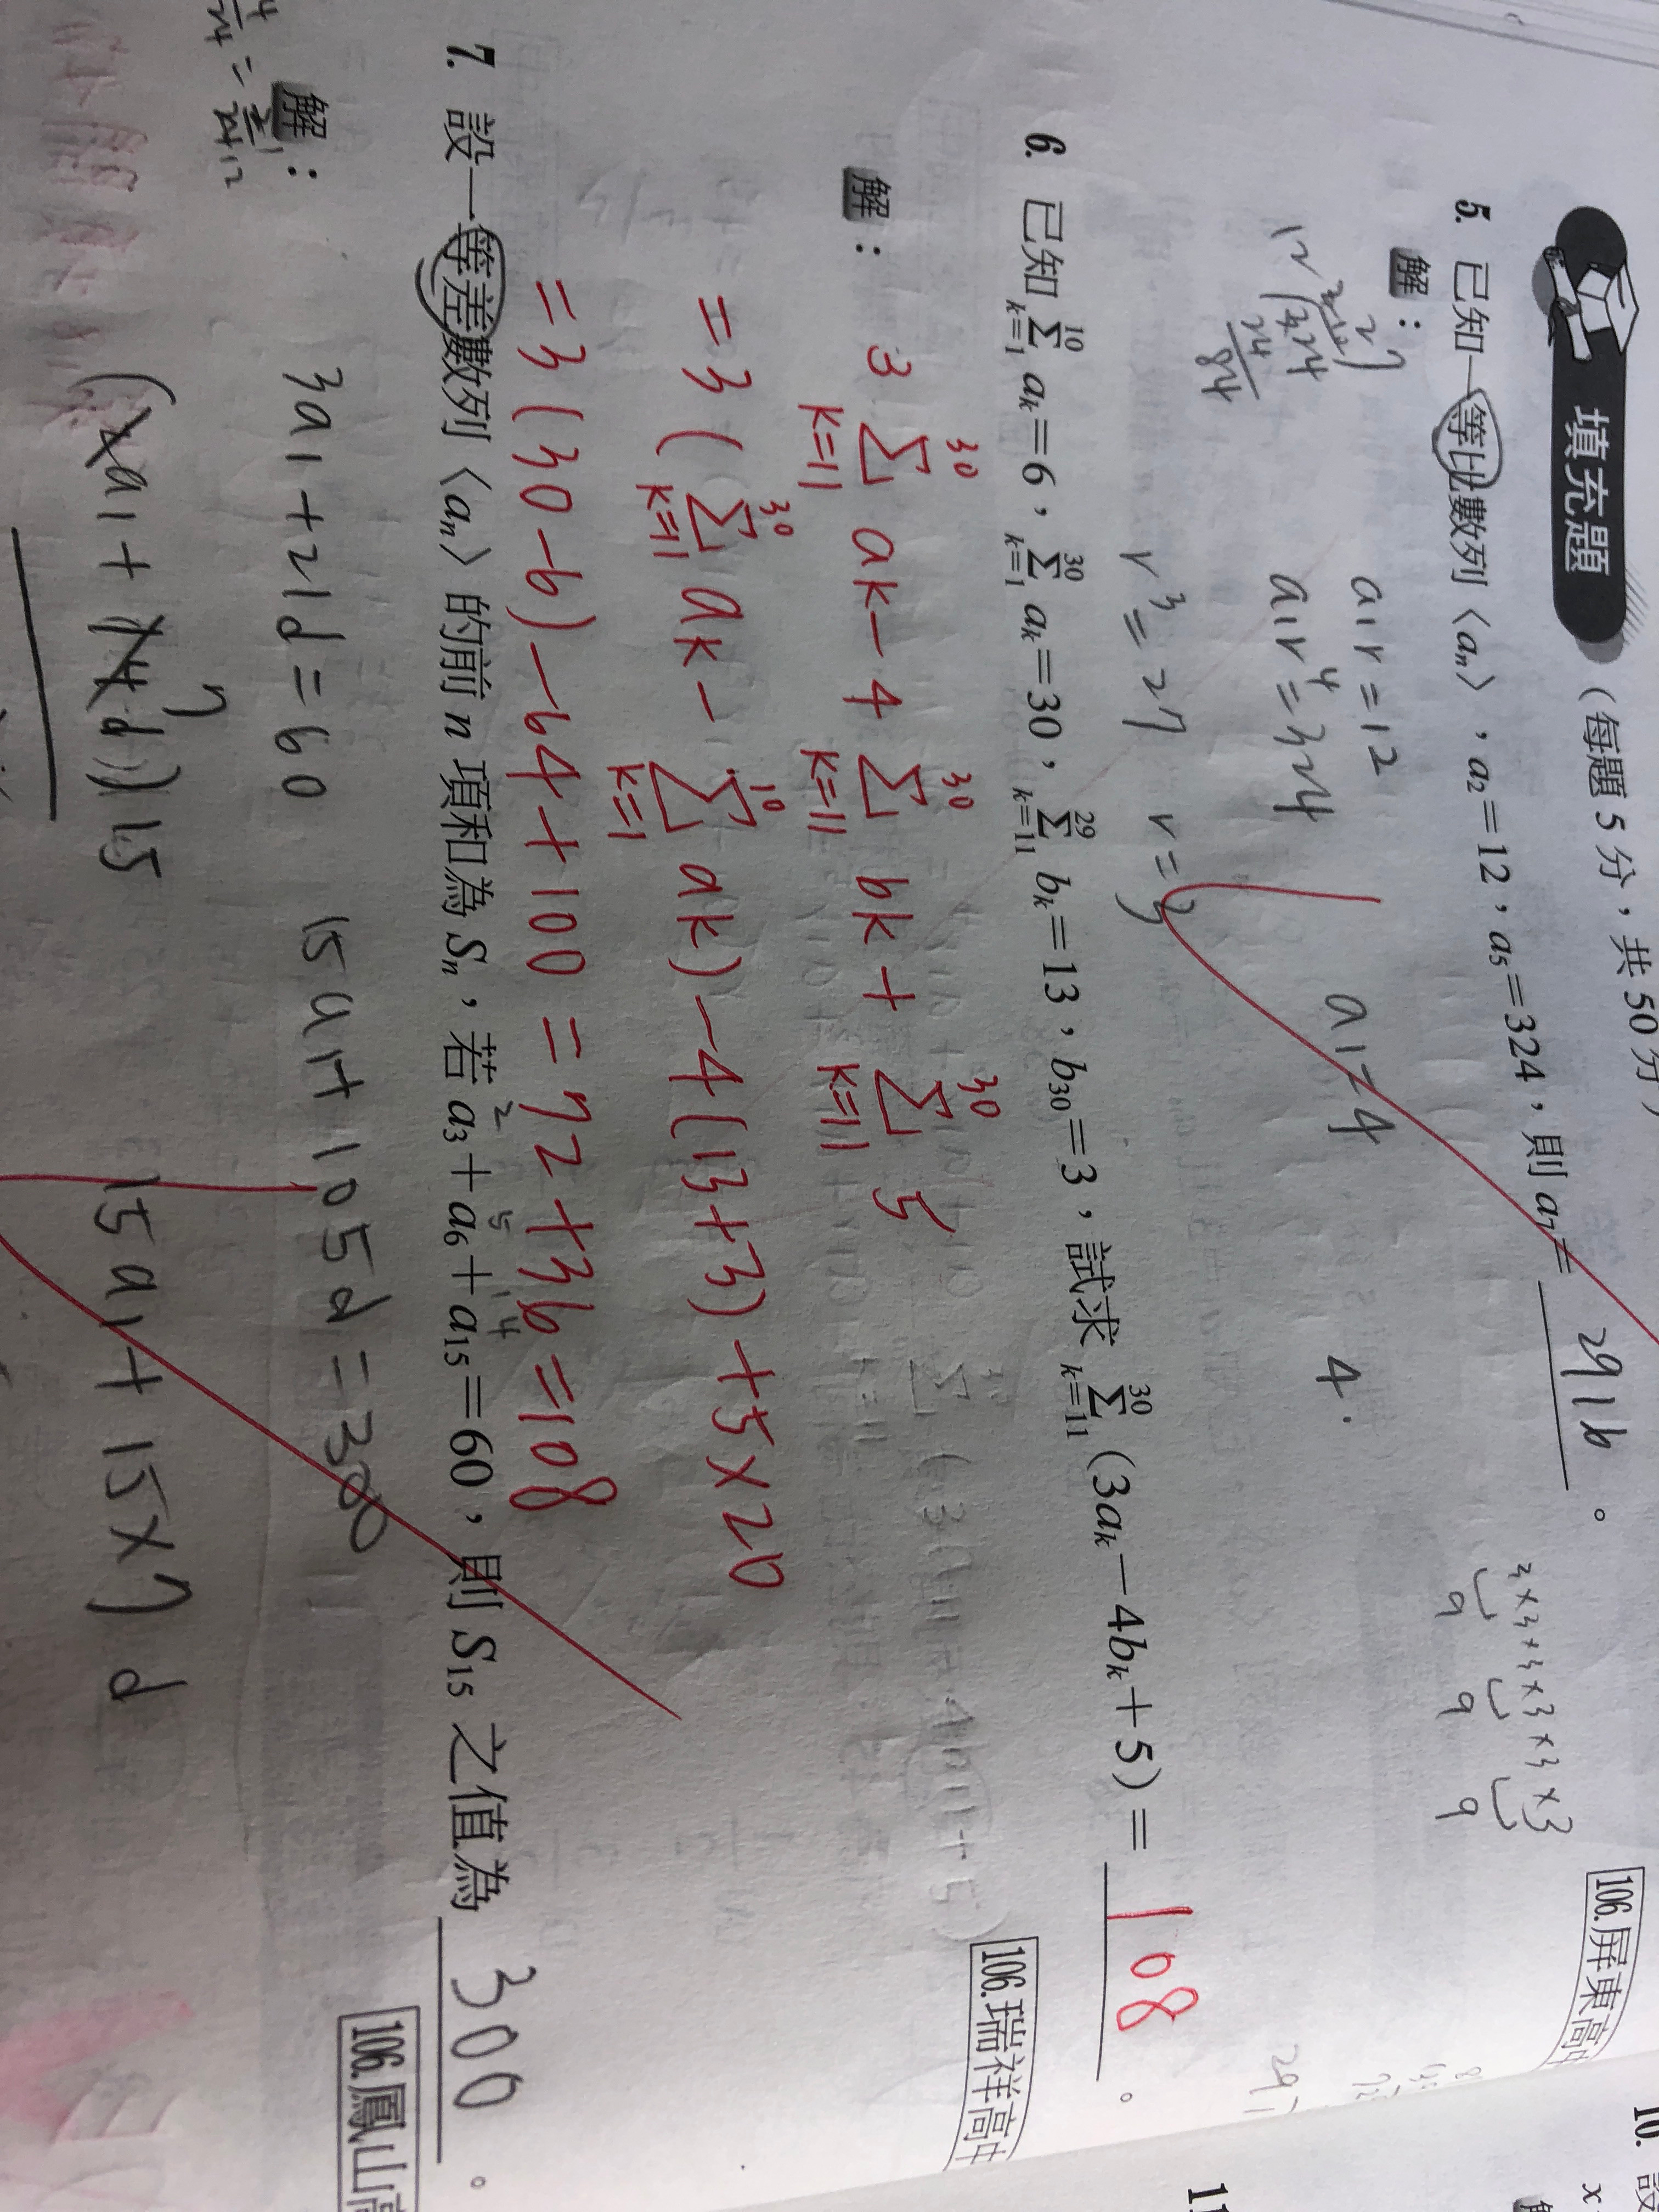 填充題（每題 5 分，共 50 分）
5. 已知一等比數列〈aₙ〉，a₂＝12，a₅＝324，則 a₇＝ 2916 。
106.屏東高中
解：
a₁r=12
a₁r⁴=324
a₁=4
4.
3×3×3×3×3×3
9 9 9
r³=27 r=3
6. 已知 Σ_{k=1}^{10} aₖ＝6，Σ_{k=1}^{30} aₖ＝30，Σ_{k=11}^{29} bₖ＝13，b₃₀＝3，試求 Σ_{k=11}^{30} (3aₖ－4bₖ＋5)＝ 108 。
106.瑞祥高中
解：
3 Σ_{k=11}^{30} ak - 4 Σ_{k=11}^{30} bk + Σ_{k=11}^{30} 5
= 3 ( Σ_{k=1}^{30} ak - Σ_{k=1}^{10} ak) - 4(13+3) + 5×20
= 3 (30-6) - 64 + 100 = 72 + 36 = 108
7. 設一等差數列〈aₙ〉的前 n 項和為 Sₙ，若 a₃＋a₆＋a₁₅＝60，則 S₁₅ 之值為 300 。
2 5 14
106.鳳山高
解：
3a₁+21d=60
15a₁+105d=300
15a₁+15×7d
10. 設
11